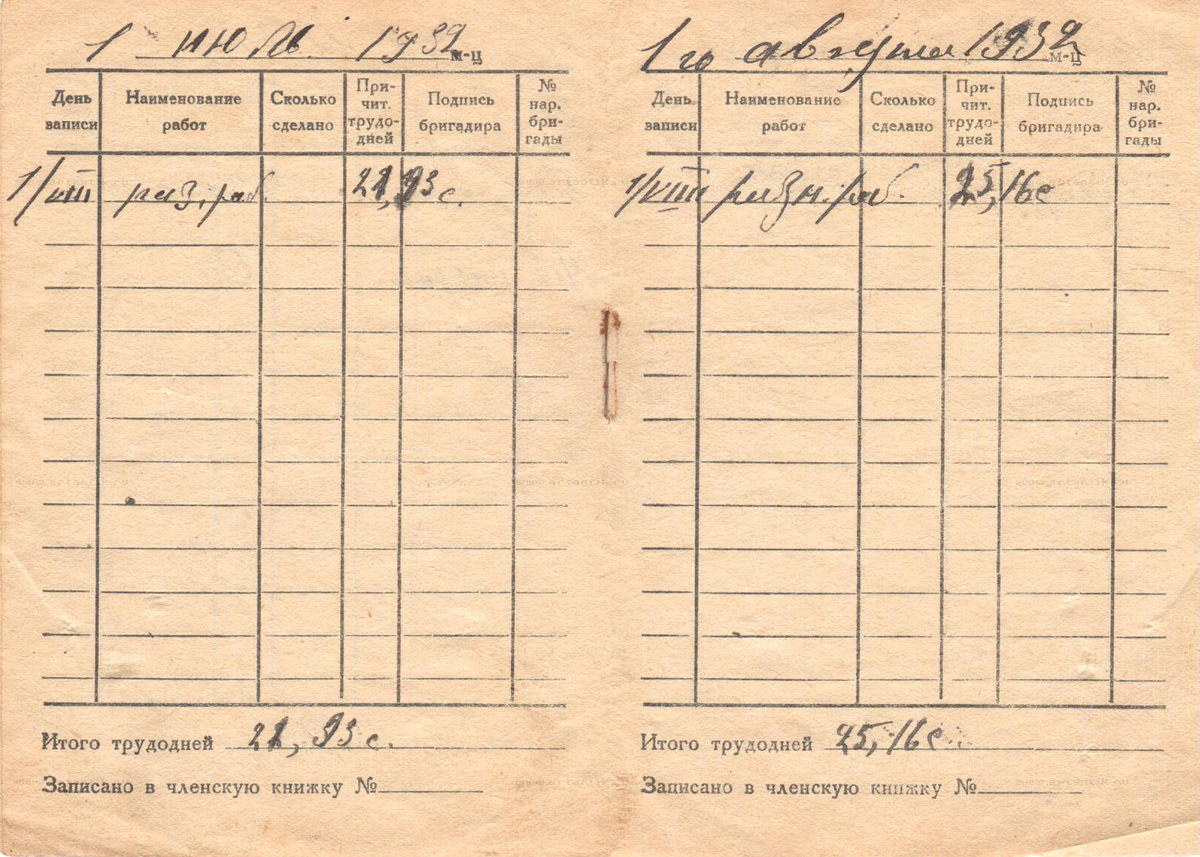 1 июль 1932 м-ц
День записи Наименование работ Сколько сделано При-чит. трудо-дней Подпись бригадира № нар. бри-гады
1/VIII раз. раб. 21,93 с.
Итого трудодней 21,93 с.
Записано в членскую книжку №
1го августа 1932 м-ц
День записи Наименование работ Сколько сделано При-чит. трудо-дней Подпись бригадира № нар. бри-гады
1/VIII разн. раб. 25,16 с
Итого трудодней 25,16 с.
Записано в членскую книжку №
www.artantik.ru